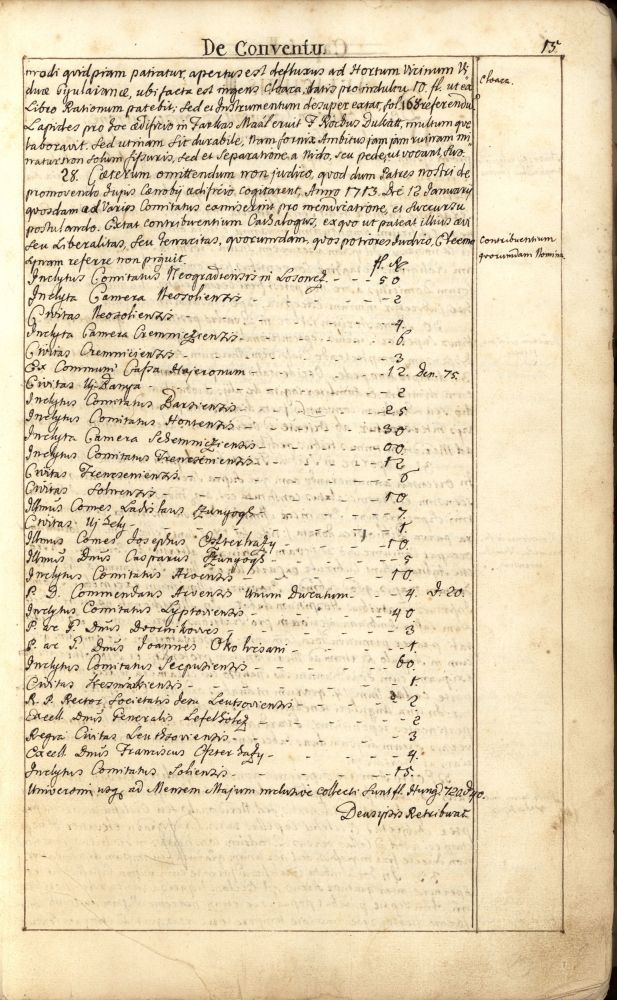 De Conventu.
15.
modi quidpiam patiatur, apertus est defluxus ad Hortum Vicinum Vi-
duæ Gyulaianæ, ubi facta est ingens Cloaca, datis pro indultu 10. fl. ut ex
Cloaca.
Libro Rationum patebit; sed et Instrumentum desuper extat, fol. 168 referendũ
Lapides pro hoc ædificio in Farkas Maál eruit F. Rochus Dukatt, multum que
laboravit. Sed utinam sit durabile, nam fornix Ambitus jam jam ruinam mi
natur non solum fissuris, sed et Separatione a Nido, seu pede, ut vocant, suo.
28. Cæterum omittendum non judico, quod dum Patres nostri de
promovendo hujus Cœnobij ædificio cogitarent, Anno 1713. Die 12 January
quosdam ad Varios Comitatus emiserint pro mendicatione, et succursu
postulando. Extat contribuentium Cathalogus, ex quo ut pateat illius ævi
seu Liberalitas, seu Tenacitas, quorumdam, quos potiores judico, Eleemo
Contribuentium
quorumdam Nomina.
synam referre non piguit.
fl. R.
Inclytus Comitatus Neogradiensis in Losoncz - - - 50
Inclyta Camera Neosoliensis - - - 2
Civitas Neosoliensis - - - 4.
Inclyta Camera Cremnicziensis - - - 6.
Civitas Cremniciensis - - - 3
Ex Communi Cassa Hajeronum - - - 12 Den. 75.
Civitas Uj Banya - - - 2
Inclytus Comitatus Barsiensis - - - 25
Inclytus Comitatus Hontensis - - - 30
Inclyta Camera Schemnicziensis - - - 00.
Inclytus Comitatus Trenceniensis - - - 12
Civitas Trenceniensis - - - 6
Civitas Solnensis - - - 10
Illmus Comes Ladislaus - - - 7.
Civitas Uj hely - - - 1.
Illmus Comes Josephus Eszterhazy - - - 10.
Illmus Dnus Casparus - - - 5
Inclytus Comitatus Arvensis - - - 10.
P. D. Commendans Arvensis Unum Ducatum - - - 4. d. 20.
Inclytus Comitatus Lyptoviensis - - - 40
P. ac G. Dnus Dvornikovics - - - 3
P. ac G. Dnus Joannes Okolicsani - - - 1.
Inclytus Comitatus Scepusiensis - - - 60.
Civitas Kesmarkiensis - - - 1.
R. P. Rector Societatis Jesu Leutsoviensis - - - 2
Excell. Dnus Generalis Lefelholcz - - - 2
Regia Civitas Leuthsoviensis - - - 3
Excell. Dnus Franciscus Eszterhazy - - - 4.
Inclytus Comitatus Soliensis - - - 15.
Universim usq ad Mensem Majum inclusive collecti sunt fl. Hung.
Deus ipsis Retribuat.